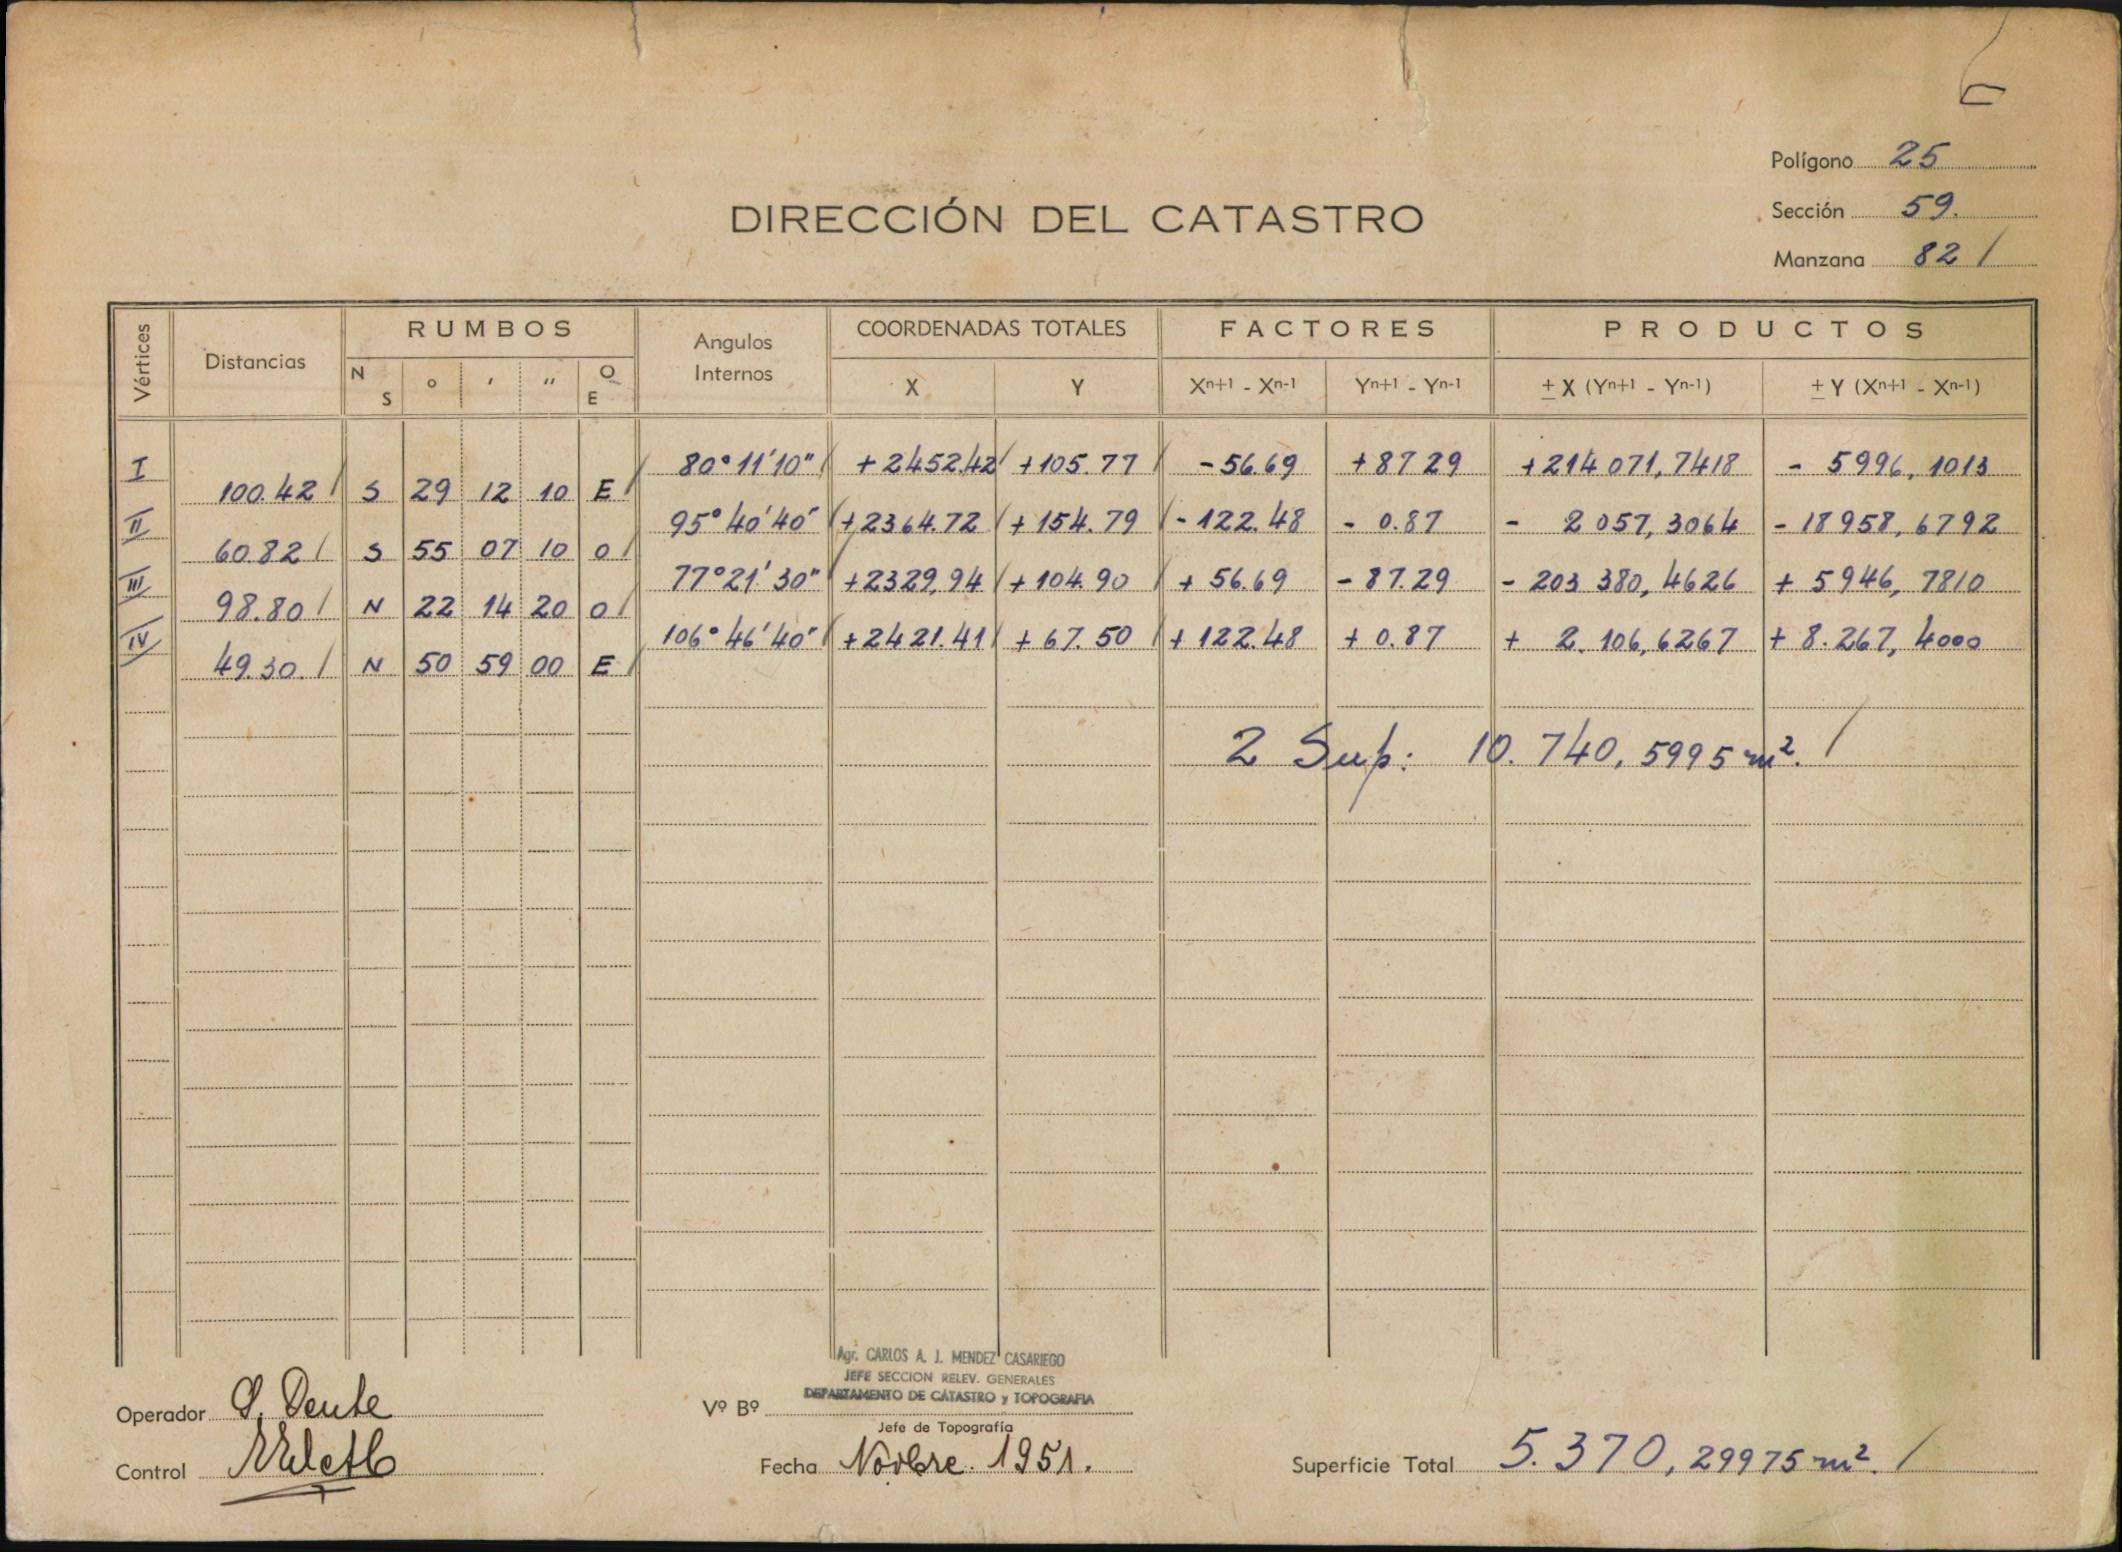 Polígono 25
DIRECCIÓN DEL CATASTRO
Sección 59.
Manzana 82 /
Vértices Distancias RUMBOS Angulos Internos COORDENADAS TOTALES FACTORES PRODUCTOS
N S ° ′ ″ O E X Y Xⁿ⁺¹ - Xⁿ⁻¹ Yⁿ⁺¹ - Yⁿ⁻¹ ± X (Yⁿ⁺¹ - Yⁿ⁻¹) ± Y (Xⁿ⁺¹ - Xⁿ⁻¹)
I 80°11'10" / +2452.42 / +105.77 / -56.69 +87.29 +214 071,7418 - 5996,1013
100.42 / S 29 12 10 E /
II 95°40'40" / +2364.72 / +154.79 / -122.48 - 0.87 - 2 057,3064 -18958,6792
60.82 / S 55 07 10 O /
III 77°21'30" / +2329,94 / +104.90 / + 56.69 -87.29 - 203 380,4626 + 5946,7810
98.80 / N 22 14 20 O /
IV 106°46'40" / +2421.41 / + 67.50 / + 122.48 + 0.87 + 2.106,6267 + 8.267,4000
49.30. / N 50 59 00 E /
2 Sup: 10.740,5995 m². /
Agr. CARLOS A. J. MENDEZ CASARIEGO
JEFE SECCION RELEV. GENERALES
DEPARTAMENTO DE CATASTRO y TOPOGRAFIA
Operador Vº Bº
Jefe de Topografía
Control Fecha Novbre. 1951. Superficie Total 5.370,29975 m². /